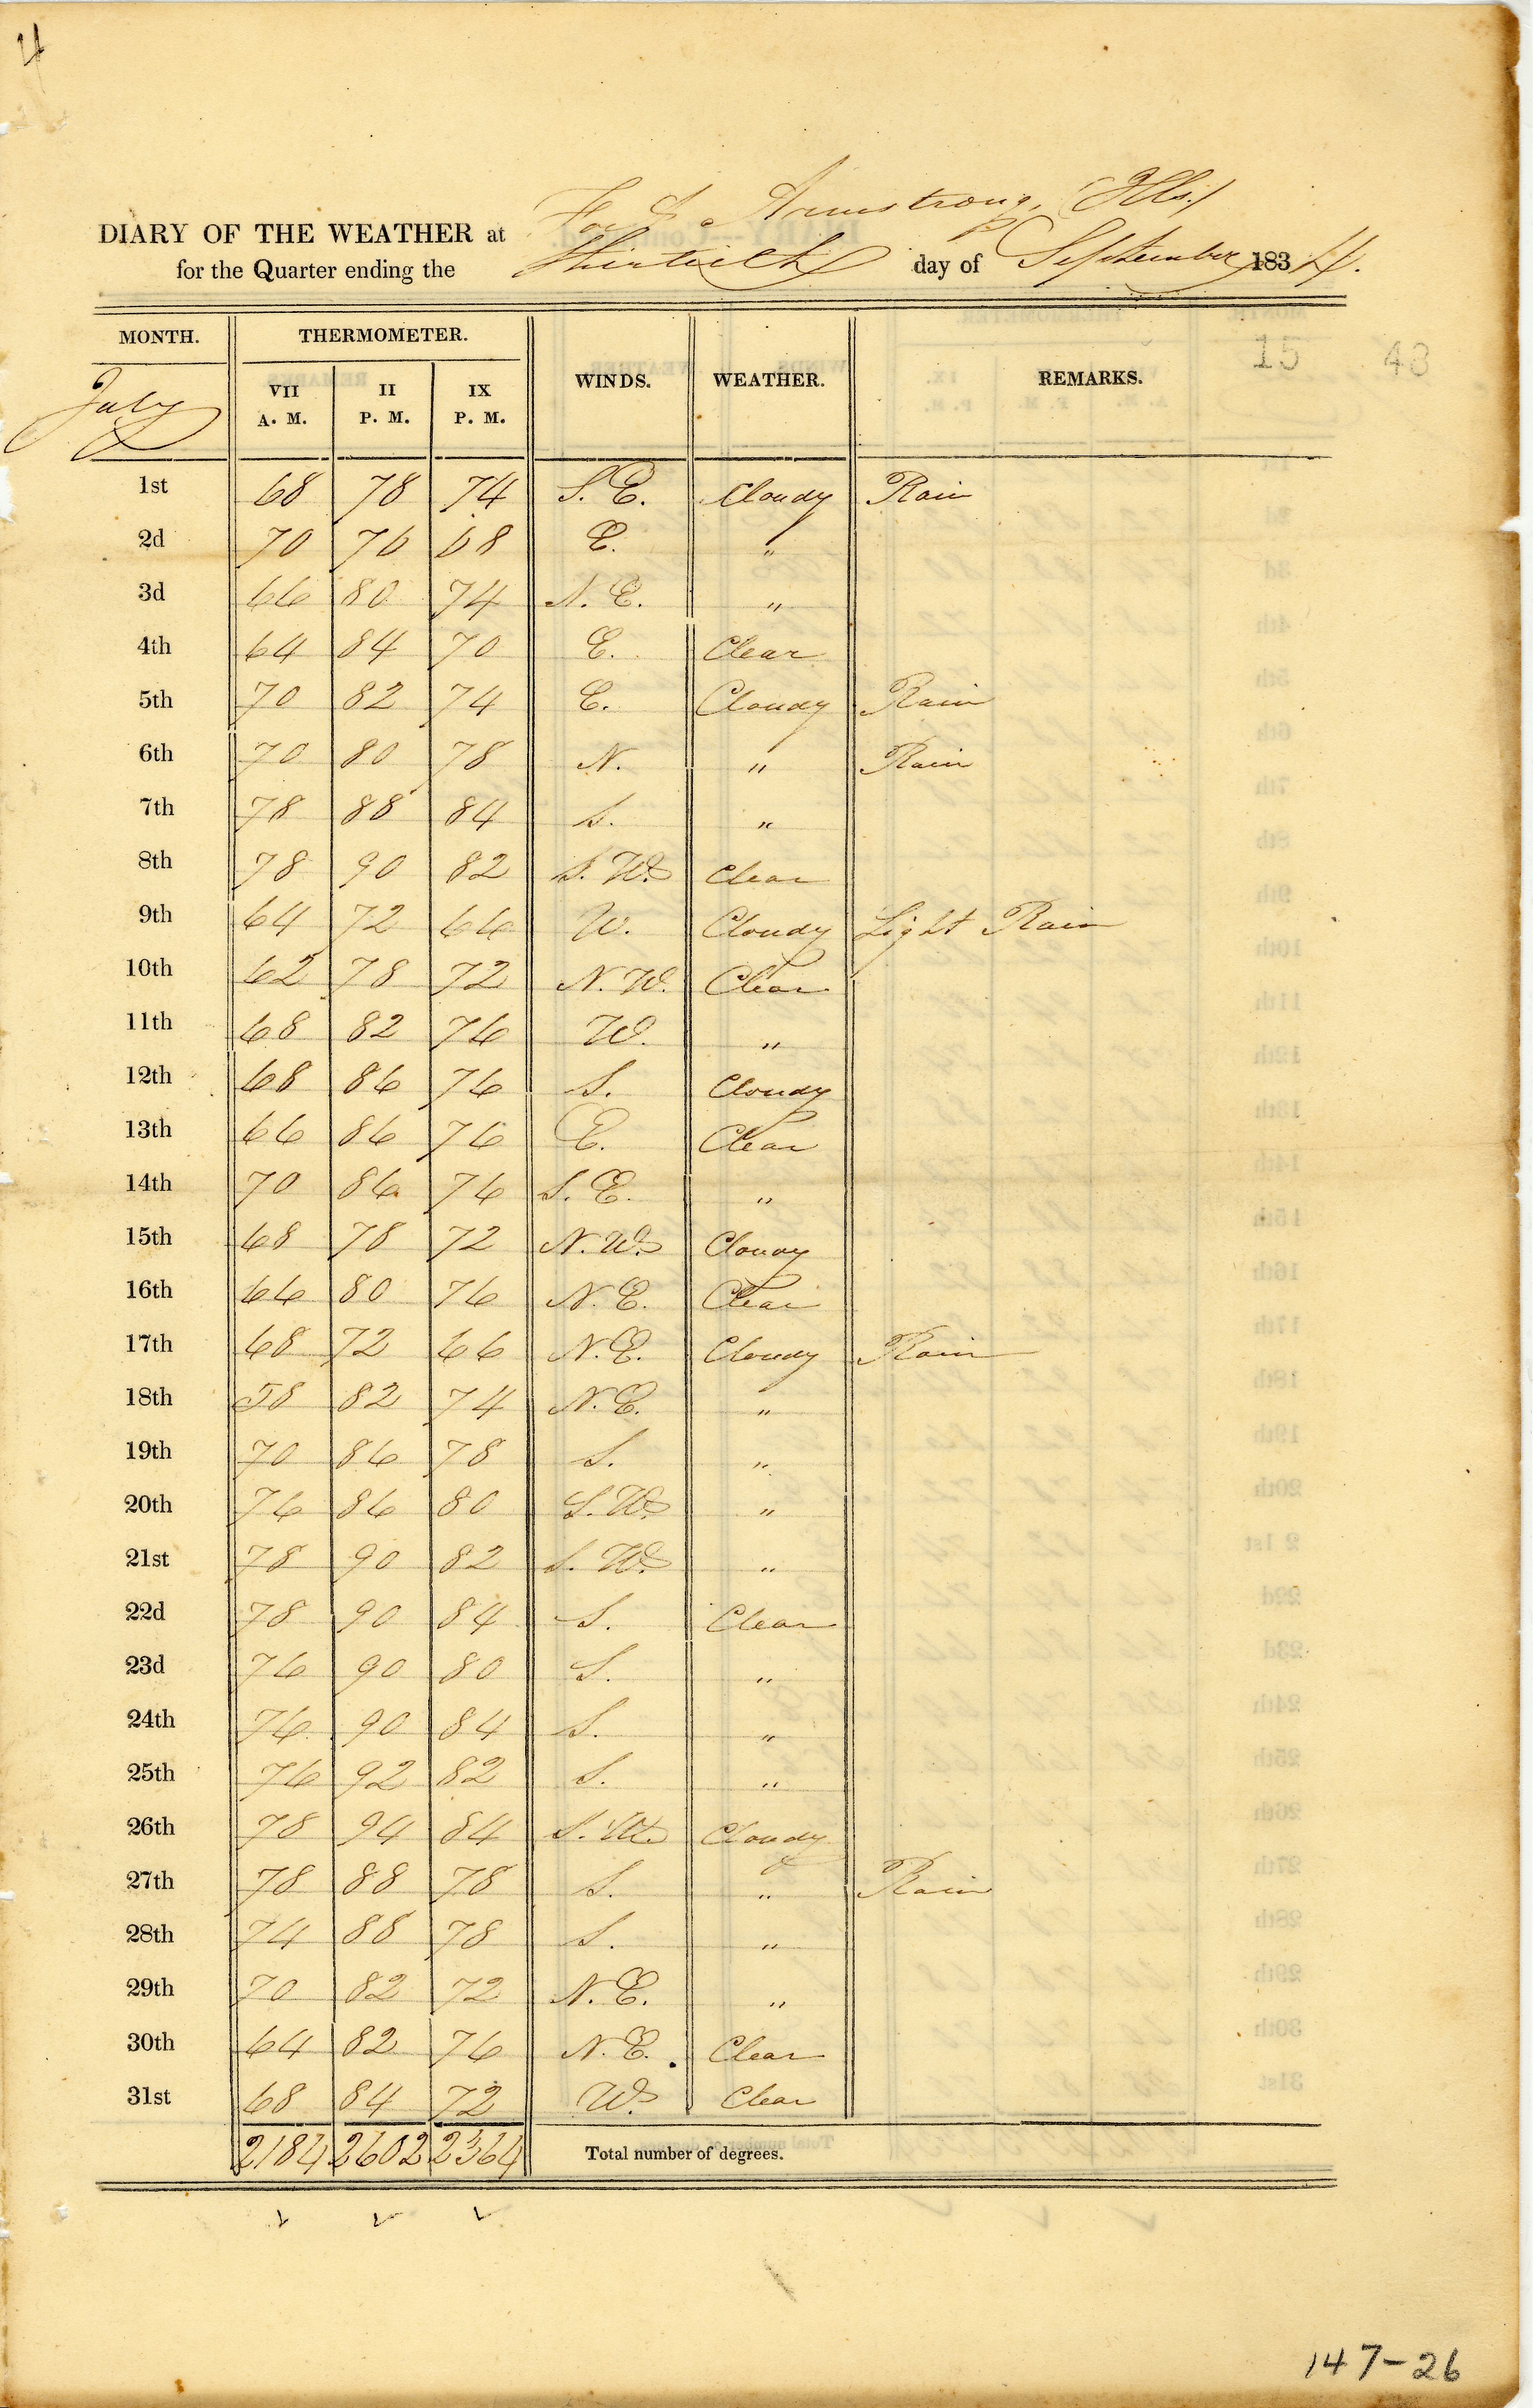 4
DIARY OF THE WEATHER at Fort Armstrong, (Ills.)
for the Quarter ending the Thirtieth day of September 1834.
MONTH. THERMOMETER. WINDS. WEATHER. REMARKS.
15 43
July VII A. M. II P. M. IX P. M.
1st 68 78 74 S. E. Cloudy Rain
2d 70 76 68 E. "
3d 66 80 74 N. E. "
4th 64 84 70 E. Clear
5th 70 82 74 E. Cloudy Rain
6th 70 80 78 N. " Rain
7th 78 88 84 S. "
8th 78 90 82 S. W. Clear
9th 64 72 66 W. Cloudy Light Rain
10th 62 78 72 N. W. Clear
11th 68 82 76 W. "
12th 68 86 76 S. Cloudy
13th 66 86 76 E. Clear
14th 70 86 76 S. E. "
15th 68 78 72 N. W. Cloudy
16th 66 80 76 N. E. Clear
17th 68 72 66 N. E. Cloudy Rain
18th 58 82 74 N. E. "
19th 70 86 78 S. "
20th 76 86 80 S. W. "
21st 78 90 82 S. W. "
22d 78 90 84 S. Clear
23d 76 90 80 S. "
24th 76 90 84 S. "
25th 76 92 82 S. "
26th 78 94 84 S. W. Cloudy
27th 78 88 78 S. " Rain
28th 74 88 78 S. "
29th 70 82 72 N. E. "
30th 64 82 76 N. E. Clear
31st 68 84 72 W. Clear
2184 2602 2364 Total number of degrees.
147-26